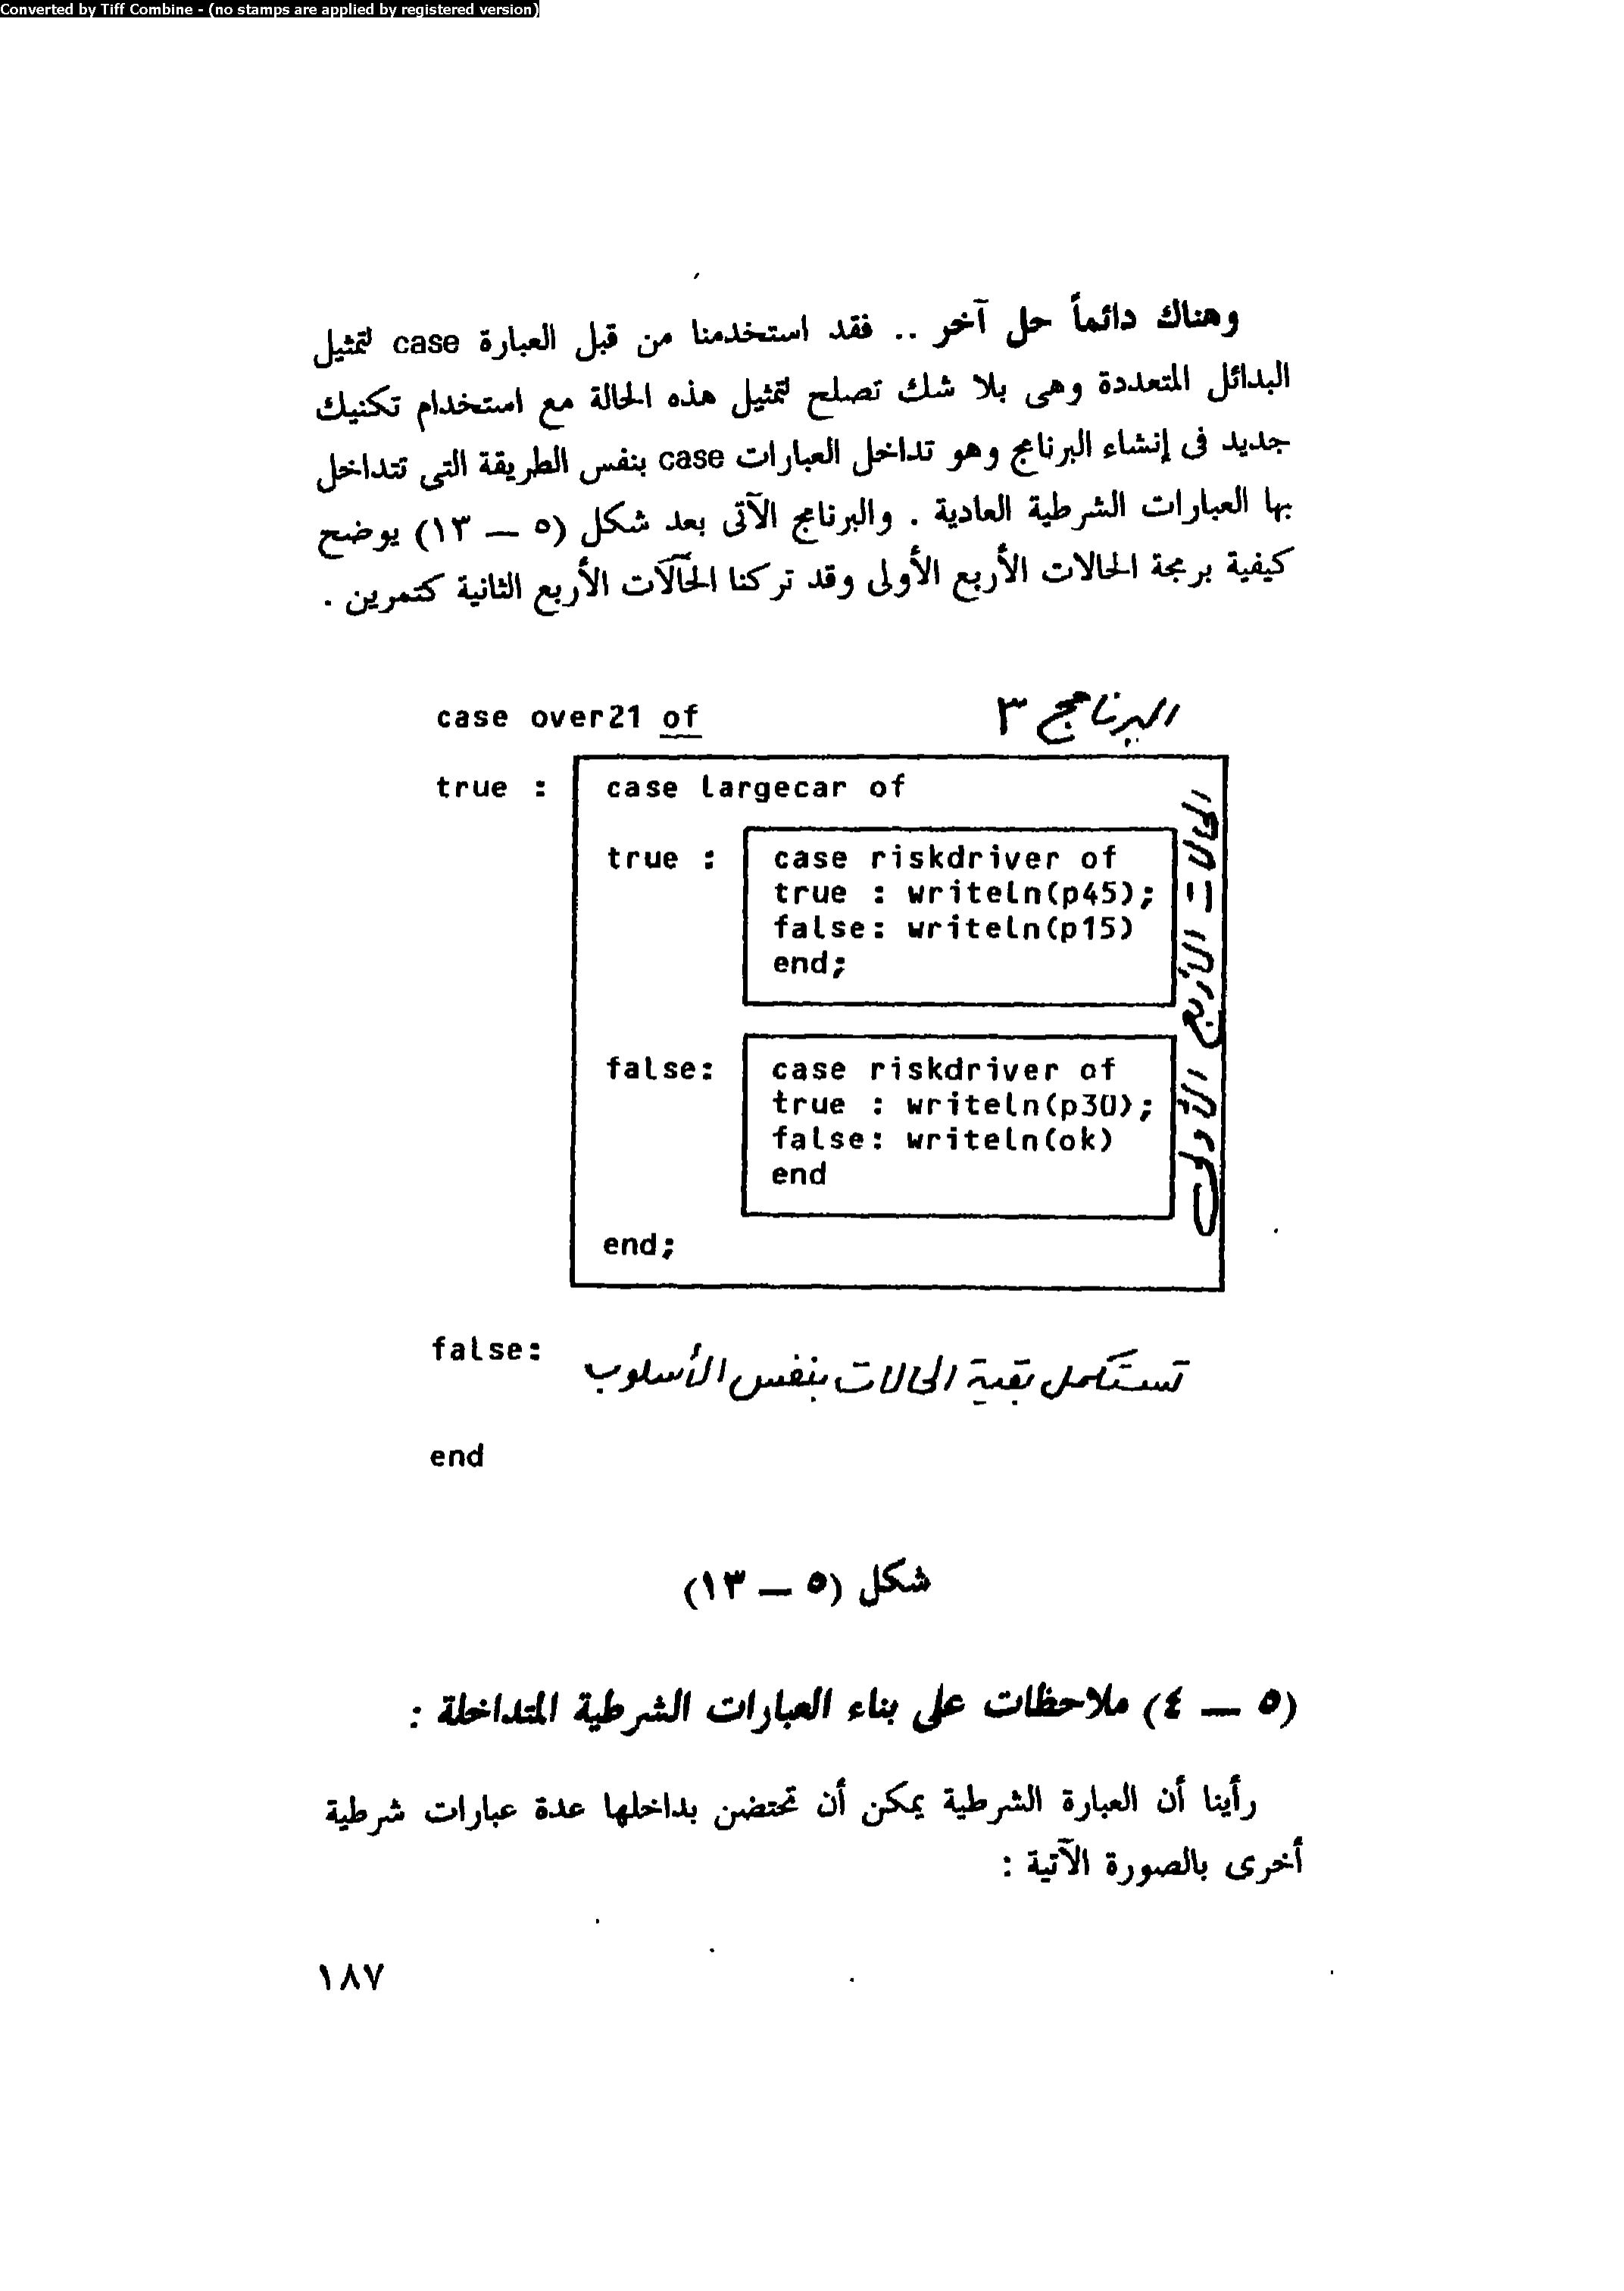 Converted by Tiff Combine - (no stamps are applied by registered version)
وهناك دائماً حل آخر .. فقد استخدمنا من قبل العبارة case لتمثيل
البدائل المتعددة وهى بلا شك تصلح لتمثيل هذه الحالة مع استخدام تكنيك
جديد فى إنشاء البرنامج وهو تداخل العبارات case بنفس الطريقة التى تتداخل
بها العبارات الشرطية العادية . والبرنامج الآتى بعد شكل (٥ — ١٣) يوضح
كيفية برمجة الحالات الأربع الأولى وقد تركنا الحآلات الأربع الثانية كتمرين .
البرنامج ٣
case over21 of
true : case largecar of
true : case riskdriver of
true : writeln(p45);
false: writeln(p15)
end;
false: case riskdriver of
true : writeln(p30);
false: writeln(ok)
end
end;
الحالات الأربع الأولى
false: تستكمل بقية الحالات بنفس الأسلوب
end
شكل (٥ — ١٣)
(٥ — ٤) ملاحظات على بناء العبارات الشرطية المتداخلة :
رأينا أن العبارة الشرطية يمكن أن تحتضن بداخلها عدة عبارات شرطية
أخرى بالصورة الآتية :
١٨٧